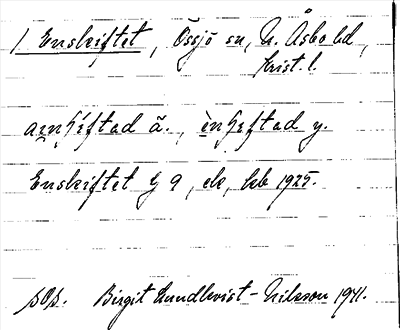 1 Enskiftet, Össjö sn, N. Åsbo hd,
Krist. l.
ȧi̯nʃiftad ä., ènʃiftad y.
Enskiftet G 9, ek, kb 1925.
sOs. Birgit Lundkvist-Nilsson 1941.